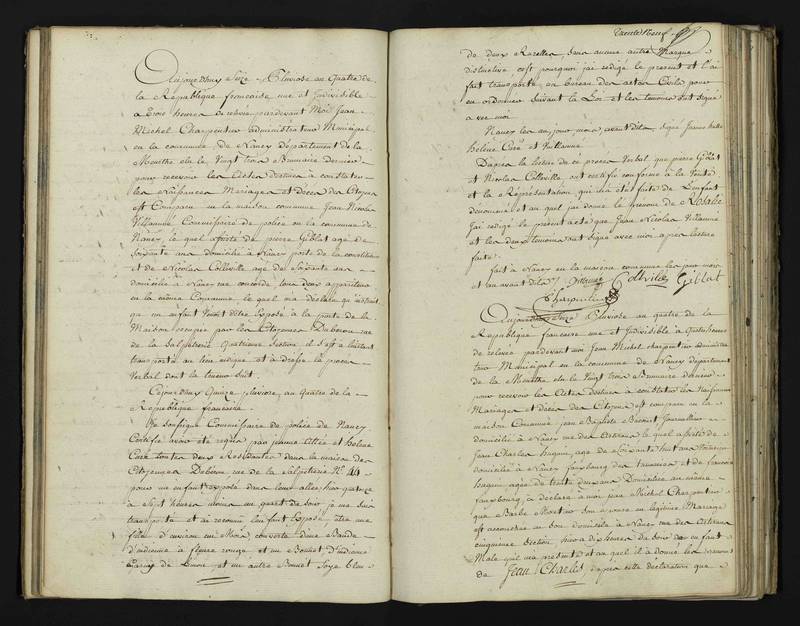 Aujourd'huy Seize Pluviose an Quatre de
la Republique francaise une et Indivisible
a trois heures de relevée pardevant Moi Jean
Michel Charpentier administrateur Municipal
en la commune de Nancy Département de la
Meurthe elu le Vingt trois Brumaire dernier
pour recevoir les Actes destinés à constater
les Naissances Mariages et Décès des Citoyens
est Comparu en la maison commune Jean Nicolas
Villaumé Commissaire de police en la commune de
Nancy le quel assisté de pierre Giblat agé de
Soixante ans domicilié a Nancy porte de la constitution
et de Nicolas Collville agé de Soixante ans
domicilié a Nancy rue concorde tous deux
en la même Commune, le quel m'a déclaré qu'instruit
qu un enfant venoit d'être Exposé a la porte de la
Maison occupée par les Citoyennes rue
de la Salpétrerie quatrieme Section il s'est a l'instant
transporté au lieu indiqué et a dressé le proces
Verbal dont la teneur suit
Cejourd'huy Quinze pluviose, an Quatre de la
Republique francaise
Je Soussigné Commissaire de police de Nancy
Certifie avoir été requis par jeanne et helene
Coré toutes deux Residantes dans la maison des
Citoyennes rue de la Salpétrerie N.º 44
pour un enfant Exposé dans leur allée, hier quatorze
a Sept heures moins un quart du soir, je me suis
transporté et ai reconnu l'enfant Exposé, être une
fille d'environ un Mois, couverte d'une Bande
d'indienne a fleurs rouge et un Bonnet d'indienne
garny de Linon, et un autre Bonnet Soye bleu
trente Neuf
de deux Razettes, sans aucune autre Marque
distinctive, c'est pourquoi j'ai redigé le present et l'ai
fait transporté, au bureau des actes Civils pour
en ordonner suivant la Loi et les temoins ont signé
avec moi
Nancy les an, jour, mois, avant dits, signé Jeanne
helene Coré et Villaumé
D'apres la lecture de ce proces Verbal, que pierre Giblat
et Nicolas Collville, ont certifié conforme à la Verité
et la Représentation qui m'a été faite de L'enfant
denommé et au quel j'ai donné le prenom de Rosalie
J'ai redigé le present acte que Jean Nicolas Villaumé
et les deux temoins ont signé avec moi apres lecture
faite
fait à Nancy en la maison commune les jour mois
et an avant dits Villaumé Collville Giblat
Charpentier
Aujourd'huy Seize Pluviose an quatre de la
Republique francaise une et Indivisible à quatre heures
de relevée pardevant moi Jean Michel charpentier administra
teur Municipal en la commune de Nancy département
de la Meurthe elu le Vingt trois Brumaire dernier
pour recevoir les Actes destinés à constater les Naissances
Mariages et Décès des Citoyens est comparu en la
maison Commune jean Baptiste Journallier
domicilié a Nancy rue des Artisans le quel assisté de
Jean Charles hugain, agé de Soixante huit ans
domicilié a Nancy fauxbourg des et de francoise
hugain agée de trente deux ans Domiciliée au même
fauxbourg, a déclaré à moi Jean Michel Charpentier
que Barbe Martin son epouse en légitime Mariage
est accouchée en son domicile a Nancy rue des Artisans
cinquieme Section hier a dix heures du soir d'un enfant
Male qu'il m'a presenté et au quel il a donné les prenoms
de Jean Charles d'apres cette déclaration que